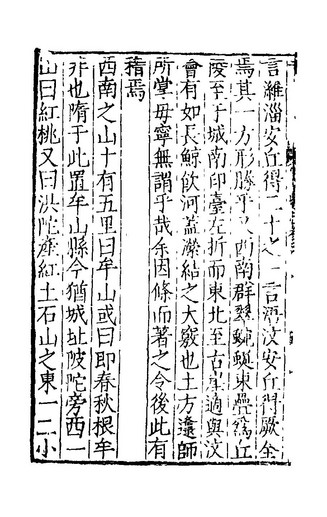 言濰淄安丘得二十之一言浯汶安丘得厥全
焉其一方形勝乎又西南群巒蜿蜒東疊爲丘
陵至于城南印臺左折而東北至古崖適與汶
會有如長鯨飮河蓋瀠結之大竅也土方達師
所堂毋寧無謂乎哉余因條而著之令後此有
稽焉
西南之山十有五里曰牟山或曰即春秋根牟
非也隋于此置牟山縣今猶城址陂陀旁西一
山曰紅桃又曰洪陀產紅土石山之東一二小